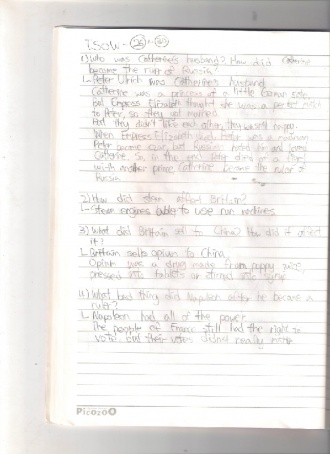 1) Who was Catherine's husband? How did Catherine
became the ruler of Russia?
L Peter Ulrich was Catherine's husband
Catherine was a princess of a little German state
but Empress Elizabeth thought she was a perfect match
to Peter, so they got married
But they didn't like each other, they was not happy.
When Empress Elizabeth died, Peter was a
Peter became czar, but Russians hated him and loved
Catherine. So, in the end, Peter died in a
with another prince. Catherine became the ruler of
Russia
2) How did steam affect Britain?
L Steam engines able to use run machines
3) What did Britain sell to China? How did it affect
it?
L Britain sells opium to China
Opium was a drug made from poppy juice,
pressed into tablets or stirred into syrup
4) What bad thing did Napoleon after he became a
ruler?
L Napoleon had all of the power
The people of France still had the right to
vote, but their votes didn't really matter
Picozo